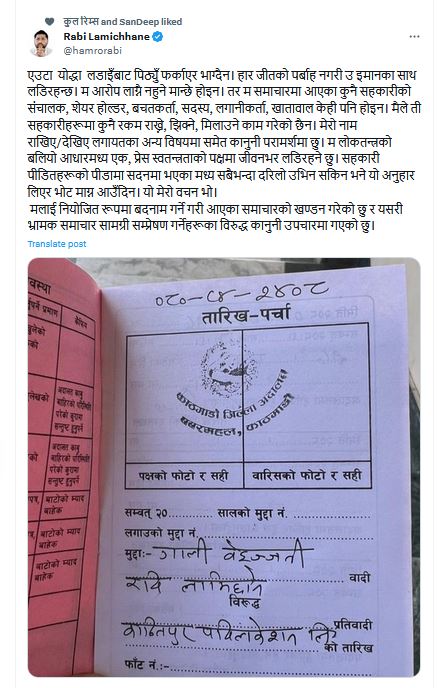 कुल रिम्स and SanDeep liked
Rabi Lamichhane
@hamrorabi
एउटा योद्धा लडाइँबाट पिठ्युँ फर्काएर भाग्दैन। हार जीतको पर्बाह नगरी उ इमानका साथ
लडिरहन्छ। म आरोप लाग्नै नहुने मान्छे होइन। तर म समाचारमा आएका कुनै सहकारीको
संचालक, शेयर होल्डर, बचतकर्ता, सदस्य, लगानीकर्ता, खातावाल केही पनि होइन। मैले ती
सहकारीहरूमा कुनै रकम राख्ने, झिक्ने, मिलाउने काम गरेको छैन। मेरो नाम
राखिए/देखिए लगायतका अन्य विषयमा समेत कानुनी परामर्शमा छु। म लोकतन्त्रको
बलियो आधारमध्य एक, प्रेस स्वतन्त्रताको पक्षमा जीवनभर लडिरहने छु। सहकारी
पीडितहरूको पीडामा सदनमा भएका मध्य सबैभन्दा दरिलो उभिन सकिन भने यो अनुहार
लिएर भोट माग्न आउँदिन। यो मेरो वचन भो।
मलाई नियोजित रूपमा बदनाम गर्ने गरी आएका समाचारको खण्डन गरेको छु र यसरी
भ्रामक समाचार सामग्री सम्प्रेषण गर्नेहरूका विरुद्ध कानुनी उपचारमा गएको छु।
Translate post
०८०-८४-२४०८
तारिख-पर्चा
काठमाडौं जिल्ला अदालत
बबरमहल, काठमाडौं
पक्षको फोटो र सही
वारिसको फोटो र सही
सम्वत् २०............ सालको मुद्दा नं.
लगाउको मुद्दा नं.
मुद्दाः- गाली बेइज्जती
रवि लामिछाने वादी
विरूद्ध
कान्तिपुर पब्लिकेशन लि प्रतिवादी
को तारिख
फाँट नं.:-
वस्था
प्रमाण
कैफियत
अदालत काबु
बाहिरको परिस्थिति
परेको कुरामा
सन्तुष्ट हुनुपर्ने
अदालत काबु
बाहिरको परिस्थिति
परेको कुरामा
सन्तुष्ट हुनुपर्ने
बाटोको म्याद
बाहेक
बाटोको म्याद
बाहेक
बाटोको म्याद
बाहेक